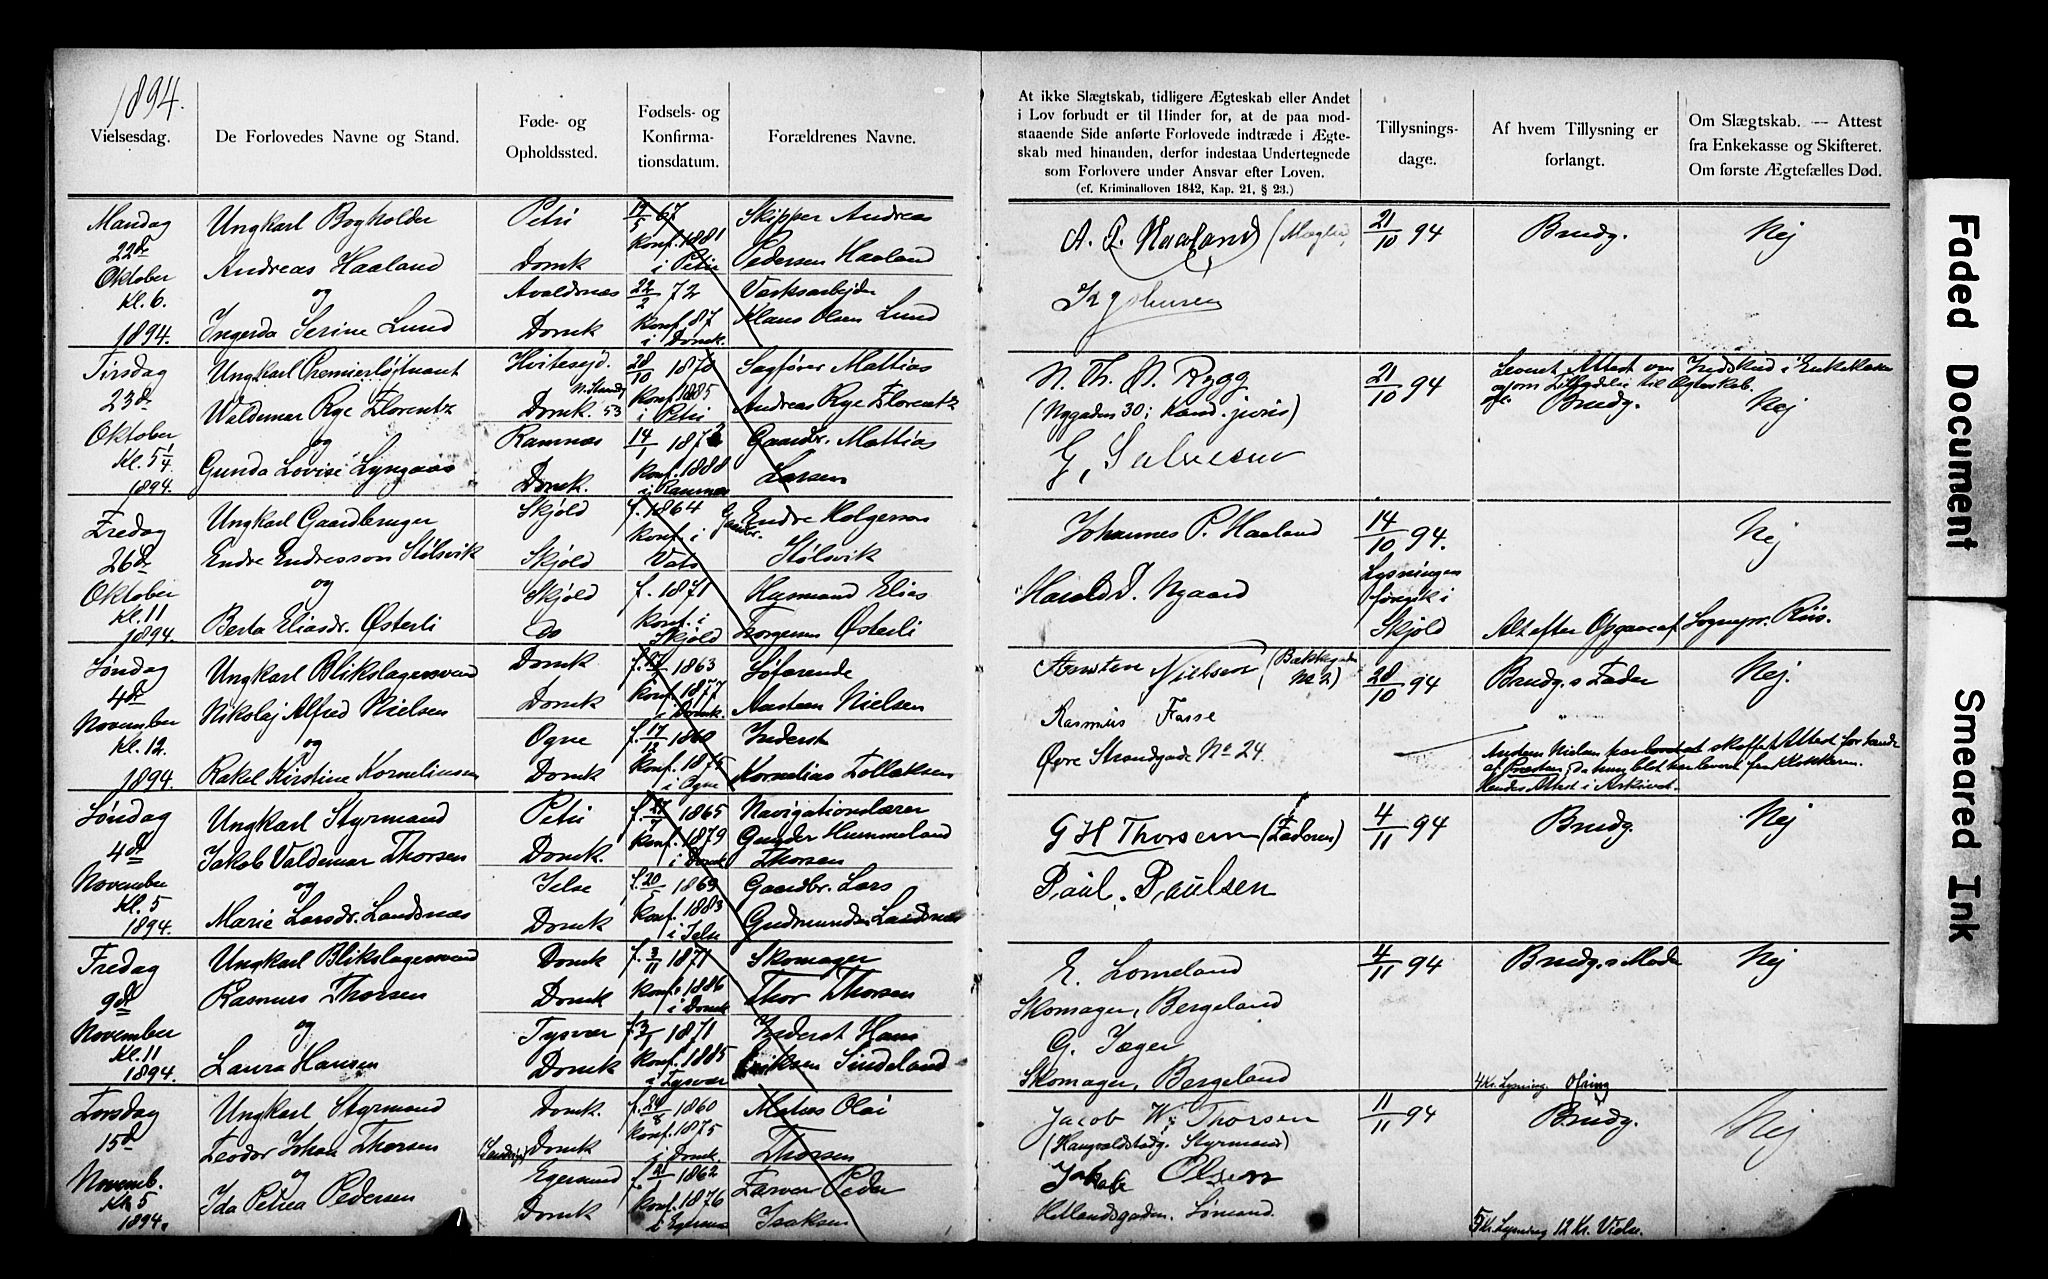 1894.
Vielsesdag.
De Forlovedes Navne og Stand.
Føde- og
Opholdssted.
Fødsels- og
Konfirma-
tionsdatum.
Forældrenes Navne.
At ikke Slægtskab, tidligere Ægteskab eller Andet
i Lov forbudt er til Hinder for, at de paa mod-
staaende Side anførte Forlovede indtræde i Ægte-
skab med hinanden, derfor indestaa Undertegnede
som Forlovere under Ansvar efter Loven.
(cf. Kriminalloven 1842, Kap. 21, § 23.)
Tillysnings-
dage.
Af hvem Tillysning er
forlangt.
Om Slægtskab. — Attest
fra Enkekasse og Skifteret.
Om første Ægtefælles Død.
Mandag
22de
Oktober
Kl. 6.
1894.
Ungkarl Bogholder
Andreas Haaland
og
Ingerda Serine Lund
Petri
Domk
Avaldsnæs
Domk
19/5 67
Konf. 1881
i Petri
22/2 72
Konf. 87
i Domk.
Skipper Andreas
Pedersen Haaland
Værksarbejder
Klaus Olsen Lund
A. P. Haaland (Mægler)
21/10 94
Brudg.
Nej
Tirsdag
23de
Oktober
Kl. 5 1/4
1894.
Ungkarl Premierløjtnant
Waldemar Rye Florentz
og
Gunda Lovise Lyngaas
Hvitesejd
Domk. 53
Ramnæs
Domk.
28/10 1870
Konf. 1885
i Petri
14/1 1872
Konf. 1888
i Ramnæs
Sagfører Mattias
Andreas Rye Florentz
Gaardbr. Mattias
Larsen
N. Th. N. Rygg
(Nygaden 30; Kand. juris)
G. Salvesen
21/10 94
Leveret Attest om Indskud i Enkekassen
og om Tilladelse til Ægteskab.
Brudg.
Nej
Fredag
26de
Oktober
Kl. 11
1894.
Ungkarl Gaardbruger
Endre Endresson Stølsvik
og
Berta Eliasdr. Østerli
Skjold
Skjold
Skjold
Do
f. 1864
Konf. i
Vats
f. 1871
Konf. i
Skjold
Gaardbr. Endre Holgersen
Stølsvik
Husmand Elias
Torgersen Østerli
Johannes P. Haaland
Harald J. Nygaard
14/10 94.
Lysningen
foregik i
Skjold
Alt efter Opgave af Sognepr. Riis.
Nej
Søndag
4de
November
Kl. 12.
1894.
Ungkarl Blikslagersvend
Nikolaj Alfred Nielsen
og
Rakel Kirstine Korneliusen
Domk
Domk
Ogne
Domk
1863
Konf. 1877
i Domk.
f. 17/12 1860
Konf. 1875
i Ogne
Søfarende
Aasteen Nielsen
Inderst
Kornelius Tollaksen
Nielsen (Bakkegaden
No 2)
Rasmus Fosse
Øvre Strandgade No 24.
28/10 94
Brudg.s Fader
Nej.
Hendes Attest i Arkivet.
Søndag
4de
November
Kl. 5
1894.
Ungkarl Styrmand
Jakob Valdemar Thorsen
og
Marie Larsdr. Landsnæs
Petri
Domk.
Jelse
Domk
f. 27/7 1865
Konf. 1879
i Domk
f. 20/5 1869
Konf. 1883
i Jelse
Navigationslærer
Gunder Hummeland
Thorsen
Gaardbr. Lars
Gudmundsen Landsnæs
G H Thorsen (Faderen)
Paul. Paulsen
4/11 94
Brudg.
Nej
Fredag
9de
November
Kl. 11
1894.
Ungkarl Blikslagersvend
Rasmus Thorsen
og
Laura Hansen
Domk
Domk
Tysvær
Domk
f. 3/11 1871
Konf. 1886
i Domk
f. 3/1 1871
Konf. 1885
i Tysvær
Skomager
Thor Thorsen
Inderst Hans
Eriksen Sindeland
E. Lomeland
Skomager, Bergeland
G. Jæger
Skomager, Bergeland
4/11 94
Brudg.s Mode
Nej
4 Kr. Lysning. Ofring
Torsdag
15de
Novemb.
Kl. 5
1894.
Ungkarl Styrmand
Teodor Johan Thorsen
og
Ida Petrea Pedersen
Domk.
Domk
Egersund
Domk
f. 24/8 1860
Konf. 1875
i Domk.
f. 21/ 1862
Konf. 1876
i Egersund
Matias Olai
Thorsen
Farver Peder
Isaksen
Jacob W. Thorsen
(Haugvaldstadg. Styrmand)
Jakob Olsen
Hetlandsgaden. Sømand.
11/11 94
Brudg.
Nej
5 Kr. Lysning 12 Kr. Vielse.
Faded Document
Smeared Ink